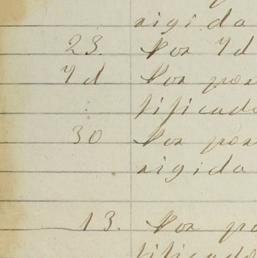 rigida
23. Por Id
Id Por por
tificado
30 Por por
rigida
13. Por po
tificado